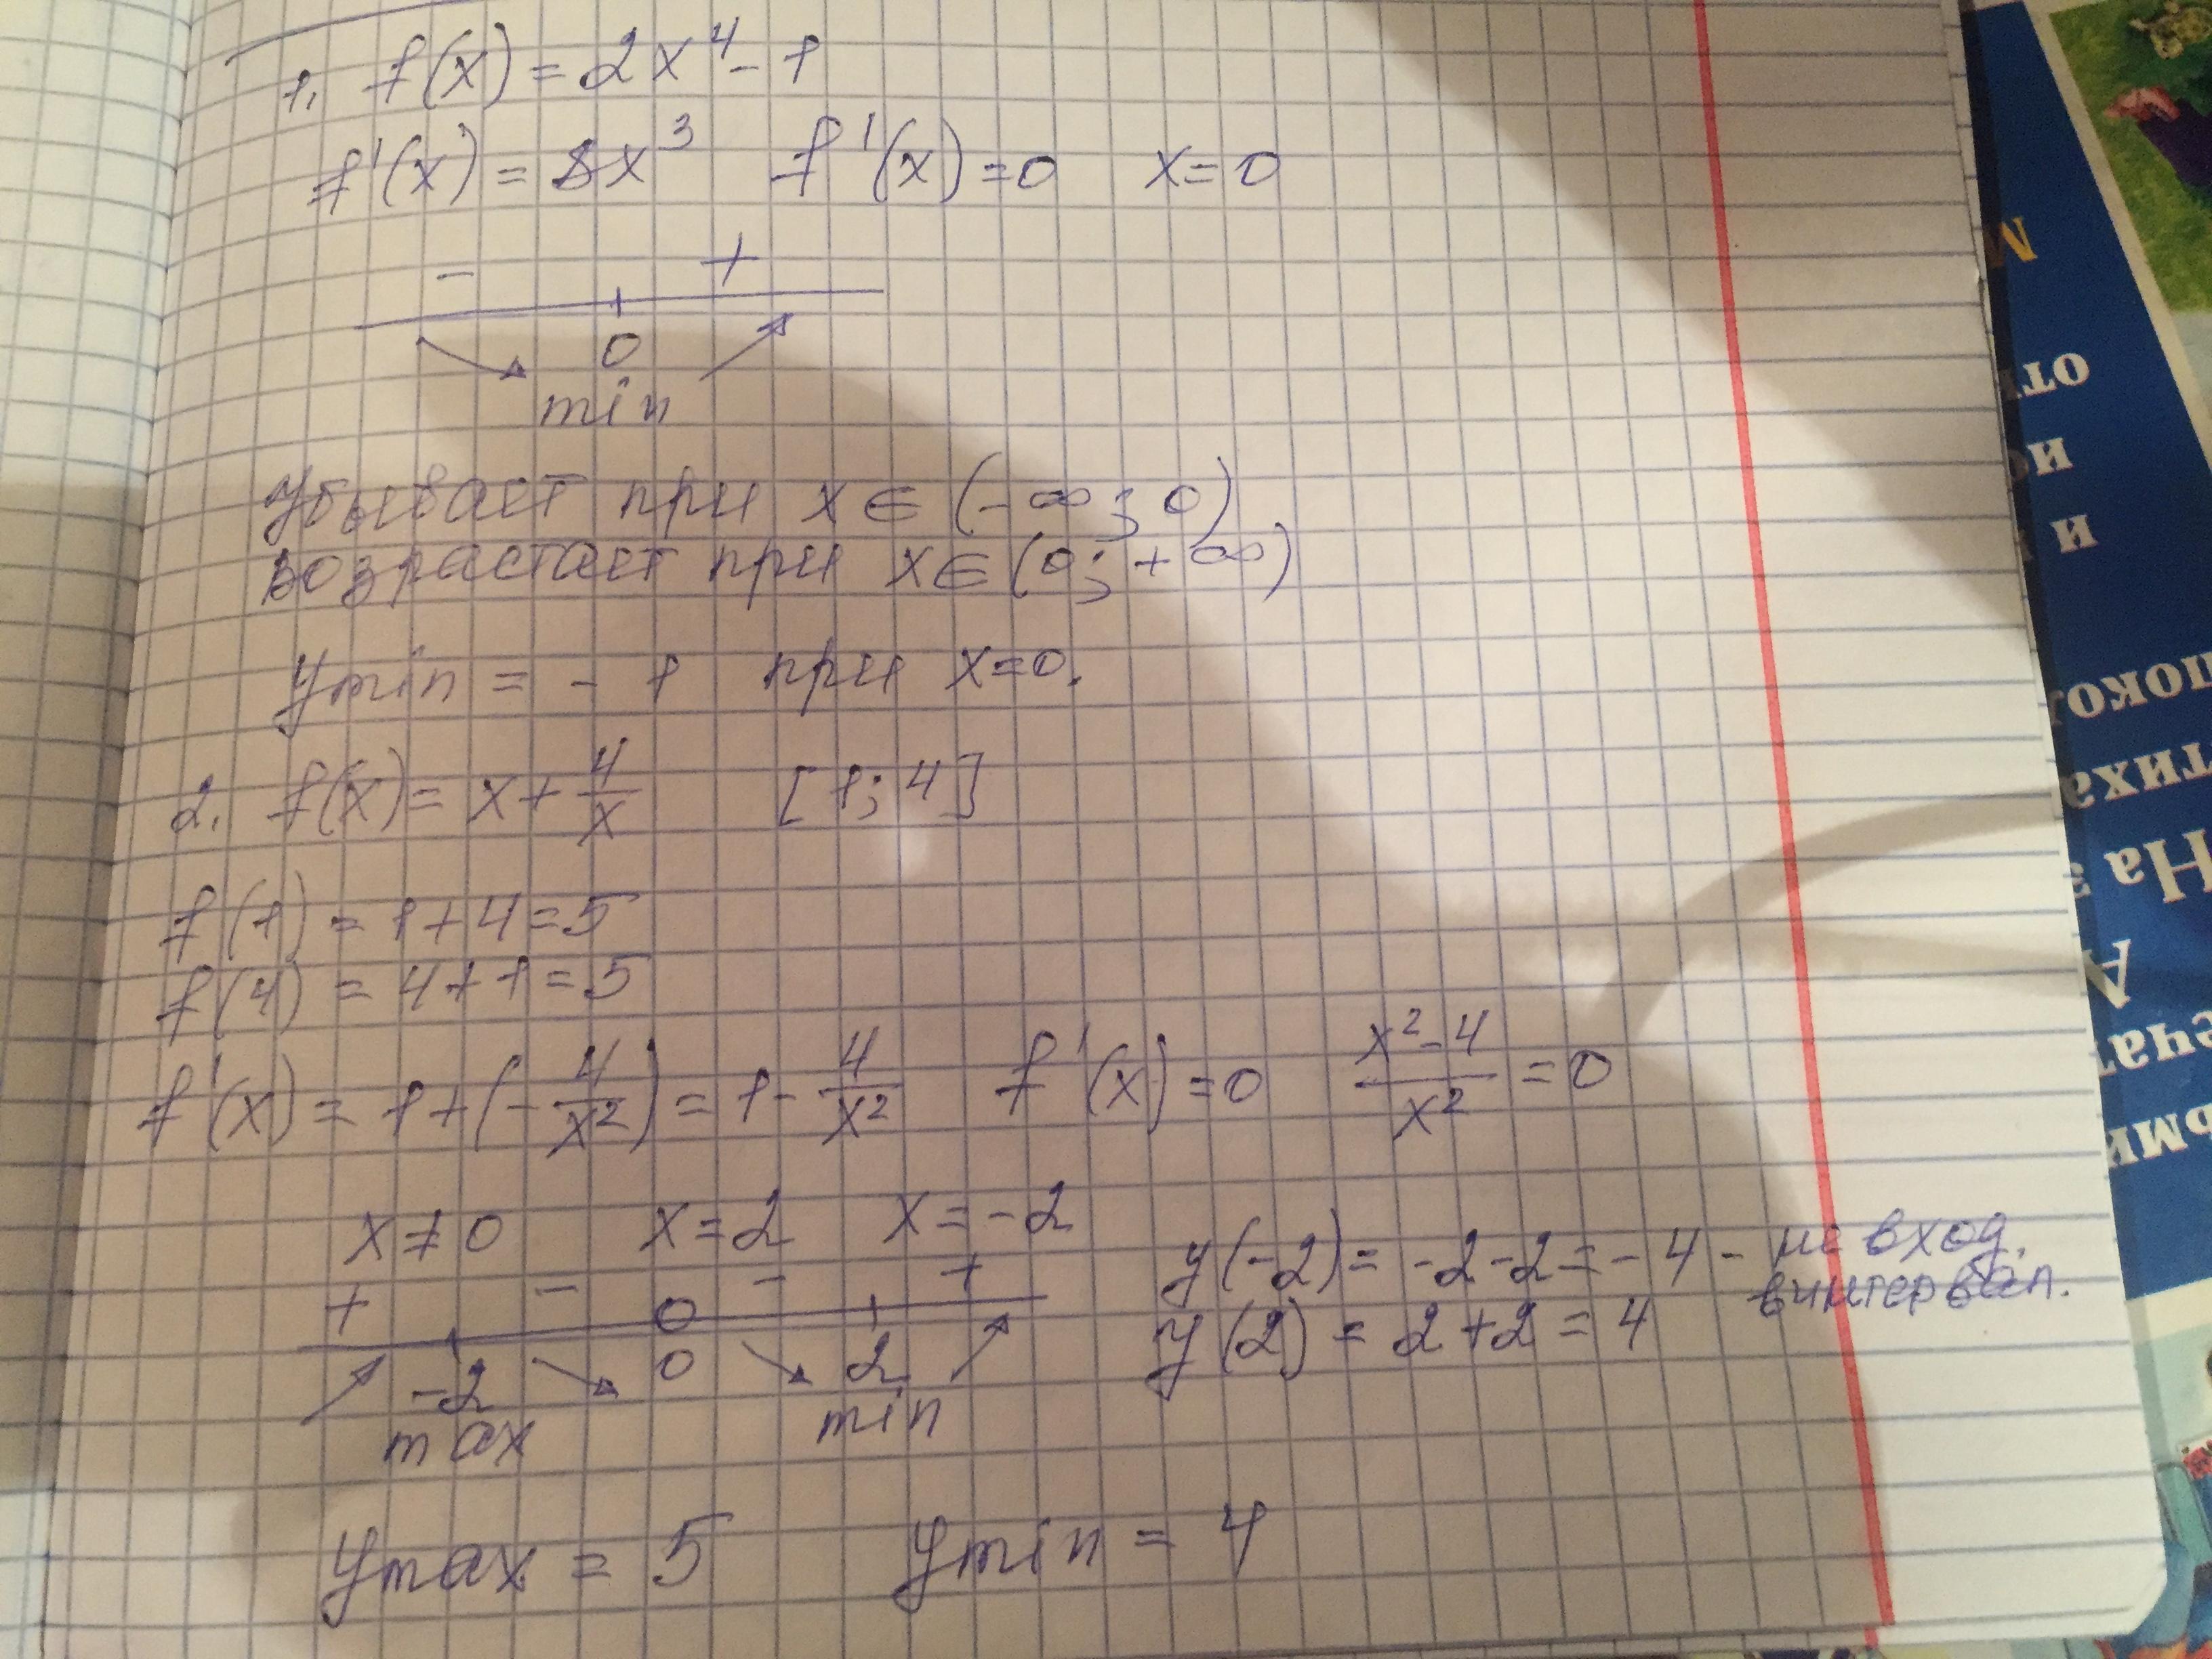 1. f(x) = 2x⁴ - 1
f'(x) = 8x³ f'(x) = 0 x = 0
- +
0
min
Убывает при x ∈ (-∞; 0)
возрастает при x ∈ (0; +∞)
ymin = - 1 при x=0.
2. f(x) = x + 4/x [1; 4]
f(1) = 1+4=5
f(4) = 4+1=5
f'(x) = 1+(-4/x²) = 1- 4/x² f'(x) = 0 (x²-4)/x² = 0
x ≠ 0 x = 2 x = -2
+ - - +
-2 0 2
max min
y(-2) = -2-2=-4 - не вход.
в интервал.
y(2) = 2+2=4
ymax = 5 ymin = 4
М
от
ис
и
поко
тиха
На
А
ечат
ьми